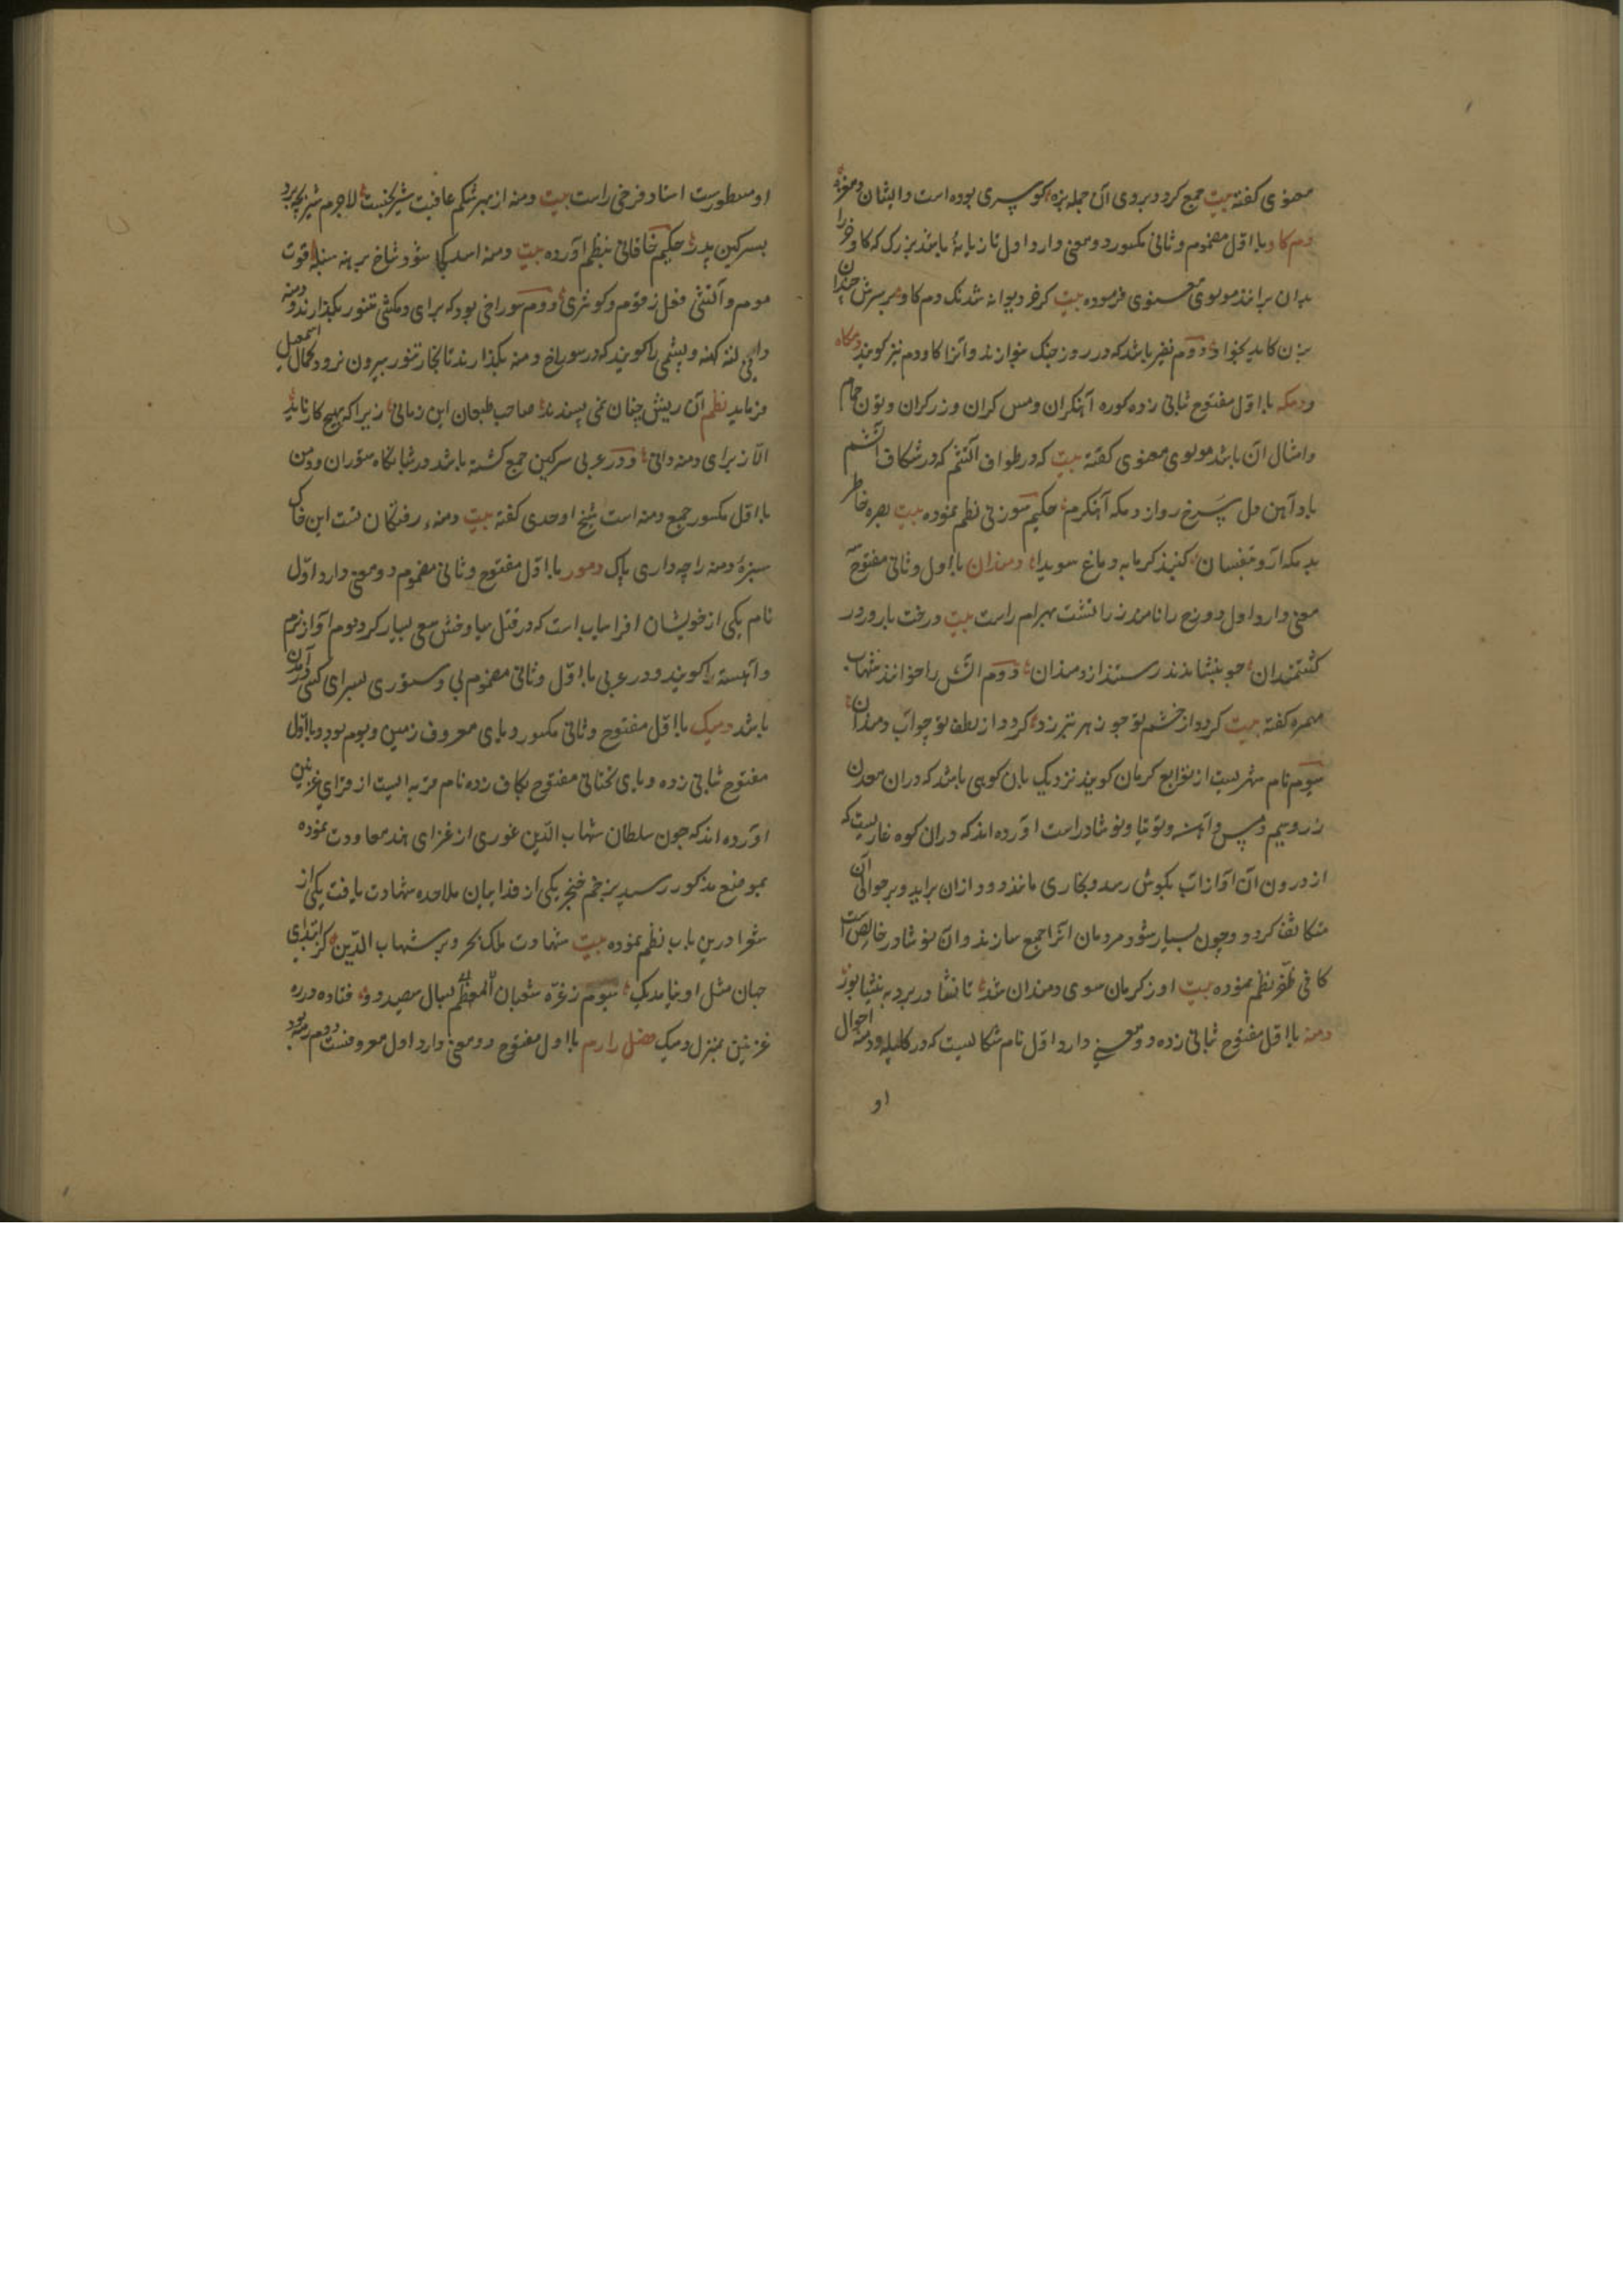 معنوی کفته بیت جمع کرد دبروی آن جمله بزه کو سپری بوده است وایشان
دم کاو با اول مضموم و ثانی مکسور دو معنی دارد اول تازیانهٔ باشد بزرک که کاو خر را
بدان برانند مولوی معنوی فرموده بیت کر خر دیوانه شد نک دم کاو بر سرش چندان
بزن کاید بخواد دوم نفیر باشد که در روز جنک بنوازند و آنرا کاو دم نیز کویند دمکاه
و دمکه با اول مفتوح بثانی زده کوره آهنکران و مس کران و زرکران و تون حمام
و امثال آن باشد مولوی معنوی کفته بیت که در طواف آتشم که در شکاف آتشم
باد آهن دل سرخ رو از دمکه آهنکرم حکیم سوزنی نظم نموده بیت بصره خاطر
بدمکه آرو تفسان کنید کرمابه دماغ سویدا دمندان با اول و ثانی مفتوح سه
معنی دارد اول دوزخ را نامند زراتشت بهرام راست بیت درخت بارور در
کشتمندان چو بنشاندند رستند از دمندان دوم آتش را خوانند شهاب
مهمره کفته بیت کردد از خشم تو چو زهر تبرزد کردد از لطف تو چو آب دمندان
سیوم نام شهریست از توابع کرمان کویند نزدیک بان کوهی باشد که دران معدن
زر و سیم و مس و آهن و توتیا و نوشادر است آورده اند که دران کوه غاریست که
از درون آن آواز آب بکوش رسد و بخاری مانند دود ازان براید و بر حوالی آن
متکاثف کردد و چون بسیار شود مردمان آنرا جمع سازند و آن نوشادر خالص است
کافی ظفر نظم نموده بیت او ز کرمان سوی دمندان شد تا نشادر برد به نیشابور
دمنه با اول مفتوح بثانی زده دو معنی دارد اول نام شکالیست که در کلیله و دمنه احوال
او
او مسطورست استاد فرخی راست بیت دمنه از بهر شکم عاقبت شیر بجست لاجرم شیر
بسرکین پدر حکیم خاقانی بنظم آورده بیت دمنه اسد کجا شود شاخ برهنه سنبله قوت
موم و آتشی فعل زقوم و کوثری دوم سوراخی بود که برای دمکشی تنور بکذارند و دمنه
دانی لته کهنه و پشمی را کویند که در سوراخ دمنه بکذارند تا بخار تنور بیرون نرود کمال اسمعیل
فرماید نظم آن ریش چنان نمی پسندند صاحب طبعان این زمانی زیرا که بهیچ کار ناید
الا ز برای دمنه دانی و در عربی سرکین جمع کشته باشد در شبانکاه ستوران و دمن
با اول مکسور جمع دمنه است شیخ اوحدی کفته بیت دمنهٔ رفتکان تست این خاک
سبزهٔ دمنه را چه داری پاک دمور با اول مفتوح و ثانی مضموم دو معنی دارد اول
نام یکی از خویشان افراسیاب است که در قتل سیاوخش سعی بسیار کرد دوم آواز نرم
و آهسته را کویند و در عربی با اول و ثانی مضموم بی دستوری بسرای کسی درآمدن
باشد دمیک با اول مفتوح و ثانی مکسور و یای معروف زمین و بوم بود و با اول
مفتوح بثانی زده و یای تحتانی مفتوح بکاف زده نام قریه ایست از قرای غزنین
آورده اند که چون سلطان شهاب الدین غوری از غزای هند معاودت نموده
بموضع مذکور رسید بزخم خنجر یکی از فدایبان ملاحده شهادت یافت یکی از
شعرا درین باب نظم نموده بیت شهادت ملک بحر و بر شهاب الدین کز ابتدای
جهان مثل او نیامد یک سیوم ز غره شعبان المعظم بسال سیصد و دو فتاده در ره
غزنین بمنزل دمیک فصل را رم با اول مفتوح دو معنی دارد اول معروفست دوم رمه بود